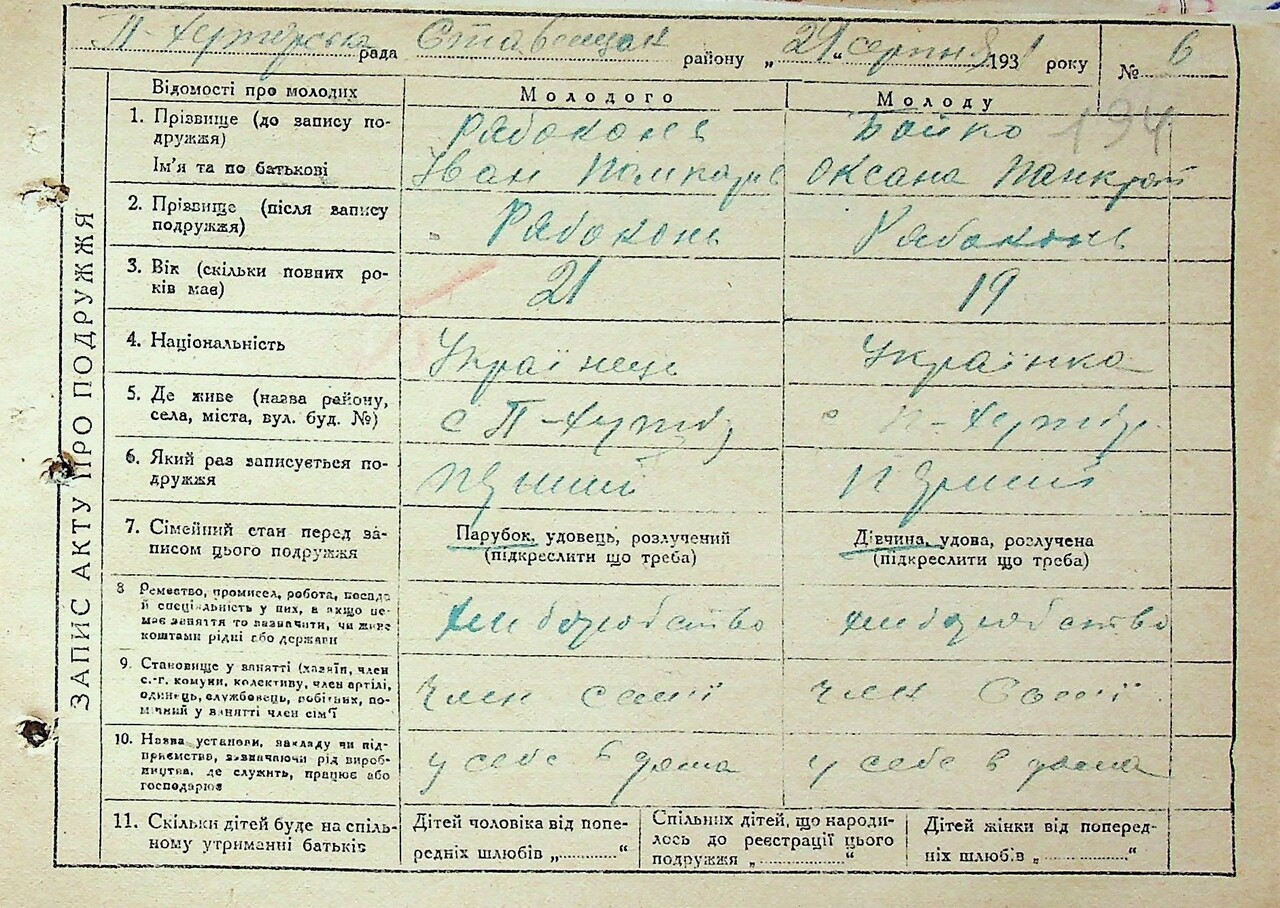 рада Ставещан району „24“ серпня 1931 року № 6
Відомості про молодих Молодого Молоду
194
1. Прізвище (до запису по-
дружжя) Рябоконь Бойко
Ім'я та по батькові Іван Оксана Панкрат
2. Прізвище (після запису
подружжя) Рябоконь Рябоконь
3. Вік (скільки повних ро-
ків має) 21 19
4. Національність Українець Українка
5. Де живе (назва району,
села, міста, вул. буд. №) с П- с П-
6. Який раз записується по-
дружжя перший перший
7. Сімейний стан перед за-
писом цього подружжя
Парубок, удовець, розлучений
(підкреслити що треба)
Дівчина, удова, розлучена
(підкреслити що треба)
8 Ремество, промисел, робота, посада
й спеціяльність у них, а якщо не-
має заняття то зазначити, чи живе
коштами рідні або держави
хлиборобство хлиборобство
9. Становище у занятті (хазяїн, член
с.-г. комуни, колективу, член артілі,
одинець, службовець, робітник, по-
мічний у занятті член сім'ї
член семї член семї
10. Назва установи, закладу чи під-
приємства, зазначаючи рід вироб-
ництва, де служить, працює або
господарює
у себе в дома у себе в дома
11. Скільки дітей буде на спіль-
ному утриманні батьків
Дітей чоловіка від попе-
редніх шлюбів „..........“
Спільних дітей, що народи-
лось до реєстрації цього
подружжя „..........“
Дітей жінки від поперед-
ніх шлюбів „..........“
ЗАПИС АКТУ ПРО ПОДРУЖЖЯ